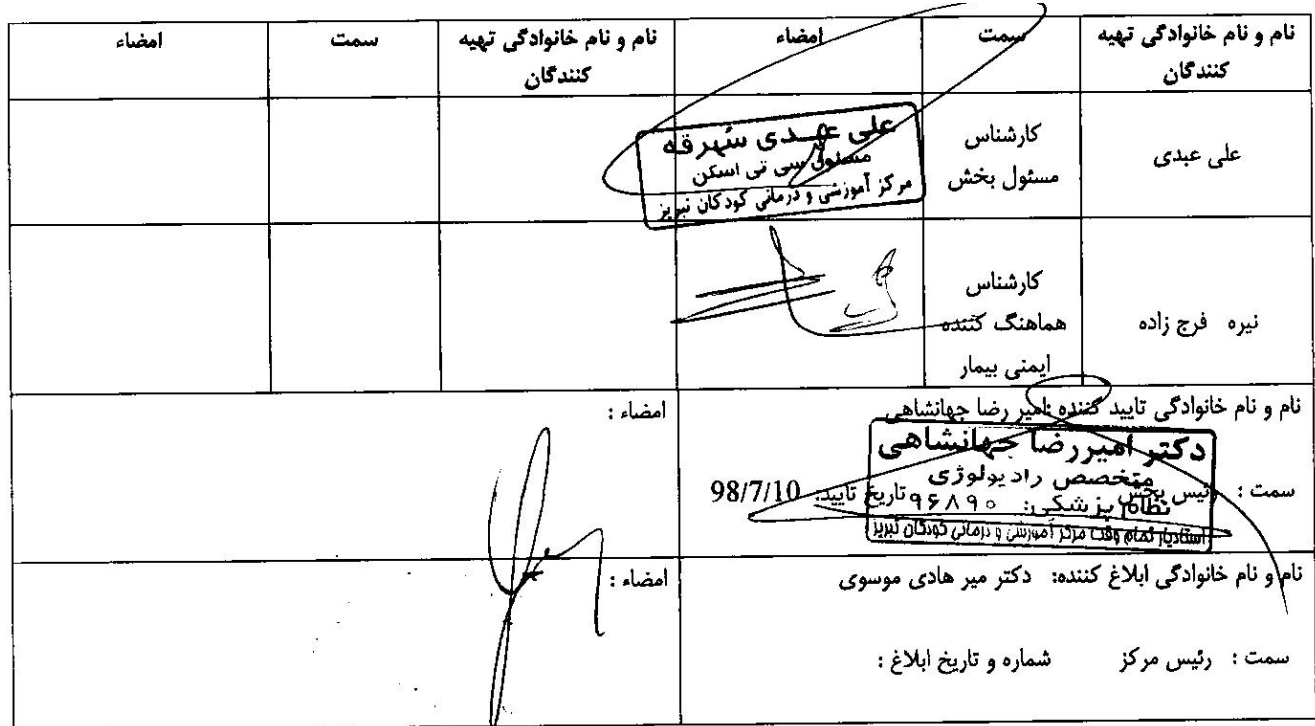 نام و نام خانوادگی تهیه کنندگان
سمت
امضاء
نام و نام خانوادگی تهیه کنندگان
سمت
امضاء
علی عبدی
کارشناس
مسئول بخش
علی عبدی شهرقه
مسئول سی تی اسکن
مرکز آموزشی و درمانی کودکان تبریز
نیره فرج زاده
کارشناس
هماهنگ کننده
ایمنی بیمار
نام و نام خانوادگی تایید کننده :امیر رضا جهانشاهی
امضاء :
دکتر امیررضا جهانشاهی
متخصص رادیولوژی
سمت : رئیس بخش تاریخ تایید: 98/7/10
نظام پزشکی: ۹۶۸۹۰
استادیار تمام وقت مرکز آموزشی و درمانی کودکان تبریز
نام و نام خانوادگی ابلاغ کننده: دکتر میر هادی موسوی
امضاء :
سمت : رئیس مرکز شماره و تاریخ ابلاغ :